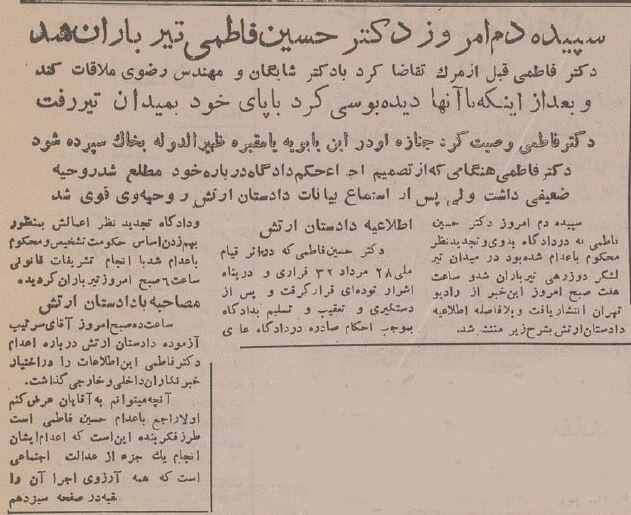 سپیده دم امروز دکتر حسین فاطمی تیر باران شد
دکتر فاطمی قبل از مرك تقاضا کرد با دکتر شایگان و مهندس رضوی ملاقات کند
و بعد از اینکه با آنها دیده بوسی کرد با پای خود بمیدان تیر رفت
دکتر فاطمی وصیت کرد جنازه او در ابن بابویه یا مقبره ظهیرالدوله بخاك سپرده شود
دکتر فاطمی هنگامی که از تصمیم اجراء حکم دادگاه درباره خود مطلع شد روحیه
ضعیفی داشت ولی پس از استماع بیانات دادستان ارتش روحیه وی قوی شد
سپیده دم امروز دکتر حسین
فاطمی که در دادگاه بدوی و تجدید نظر
محکوم باعدام شده بود در میدان تیر
لشگر دو زرهی تیرباران شد و ساعت
هفت صبح امروز این خبر از رادیو
تهران انتشار یافت و بلافاصله اطلاعیه
دادستان ارتش بشرح زیر منتشر شد.
اطلاعیه دادستان ارتش
دکتر حسین فاطمی که در اثر قیام
ملی ۲۸ مرداد ۳۲ فراری و در پناه
اشرار توده‌ای قرار گرفت و پس از
دستگیری و تعقیب و تسلیم بدادگاه
بموجب احکام صادره در دادگاه عادی
و دادگاه تجدید نظر اعمالش بمنظور
بهم زدن اساس حکومت تشخیص و محکوم
باعدام شد با انجام تشریفات قانونی
ساعت ۶ صبح امروز تیرباران گردید
مصاحبه با دادستان ارتش
ساعت ده صبح امروز آقای سرتیپ
آزموده دادستان ارتش درباره اعدام
دکتر فاطمی این اطلاعات را در اختیار
خبرنگاران داخلی و خارجی گذاشت.
آنچه میتوانم به آقایان عرض کنم
اولا راجع باعدام حسین فاطمی است
طرز فکر بنده این است که اعدام ایشان
انجام یك جزء از عدالت اجتماعی
است که همه آرزوی اجرا آن را
بقیه در صفحه سیزدهم